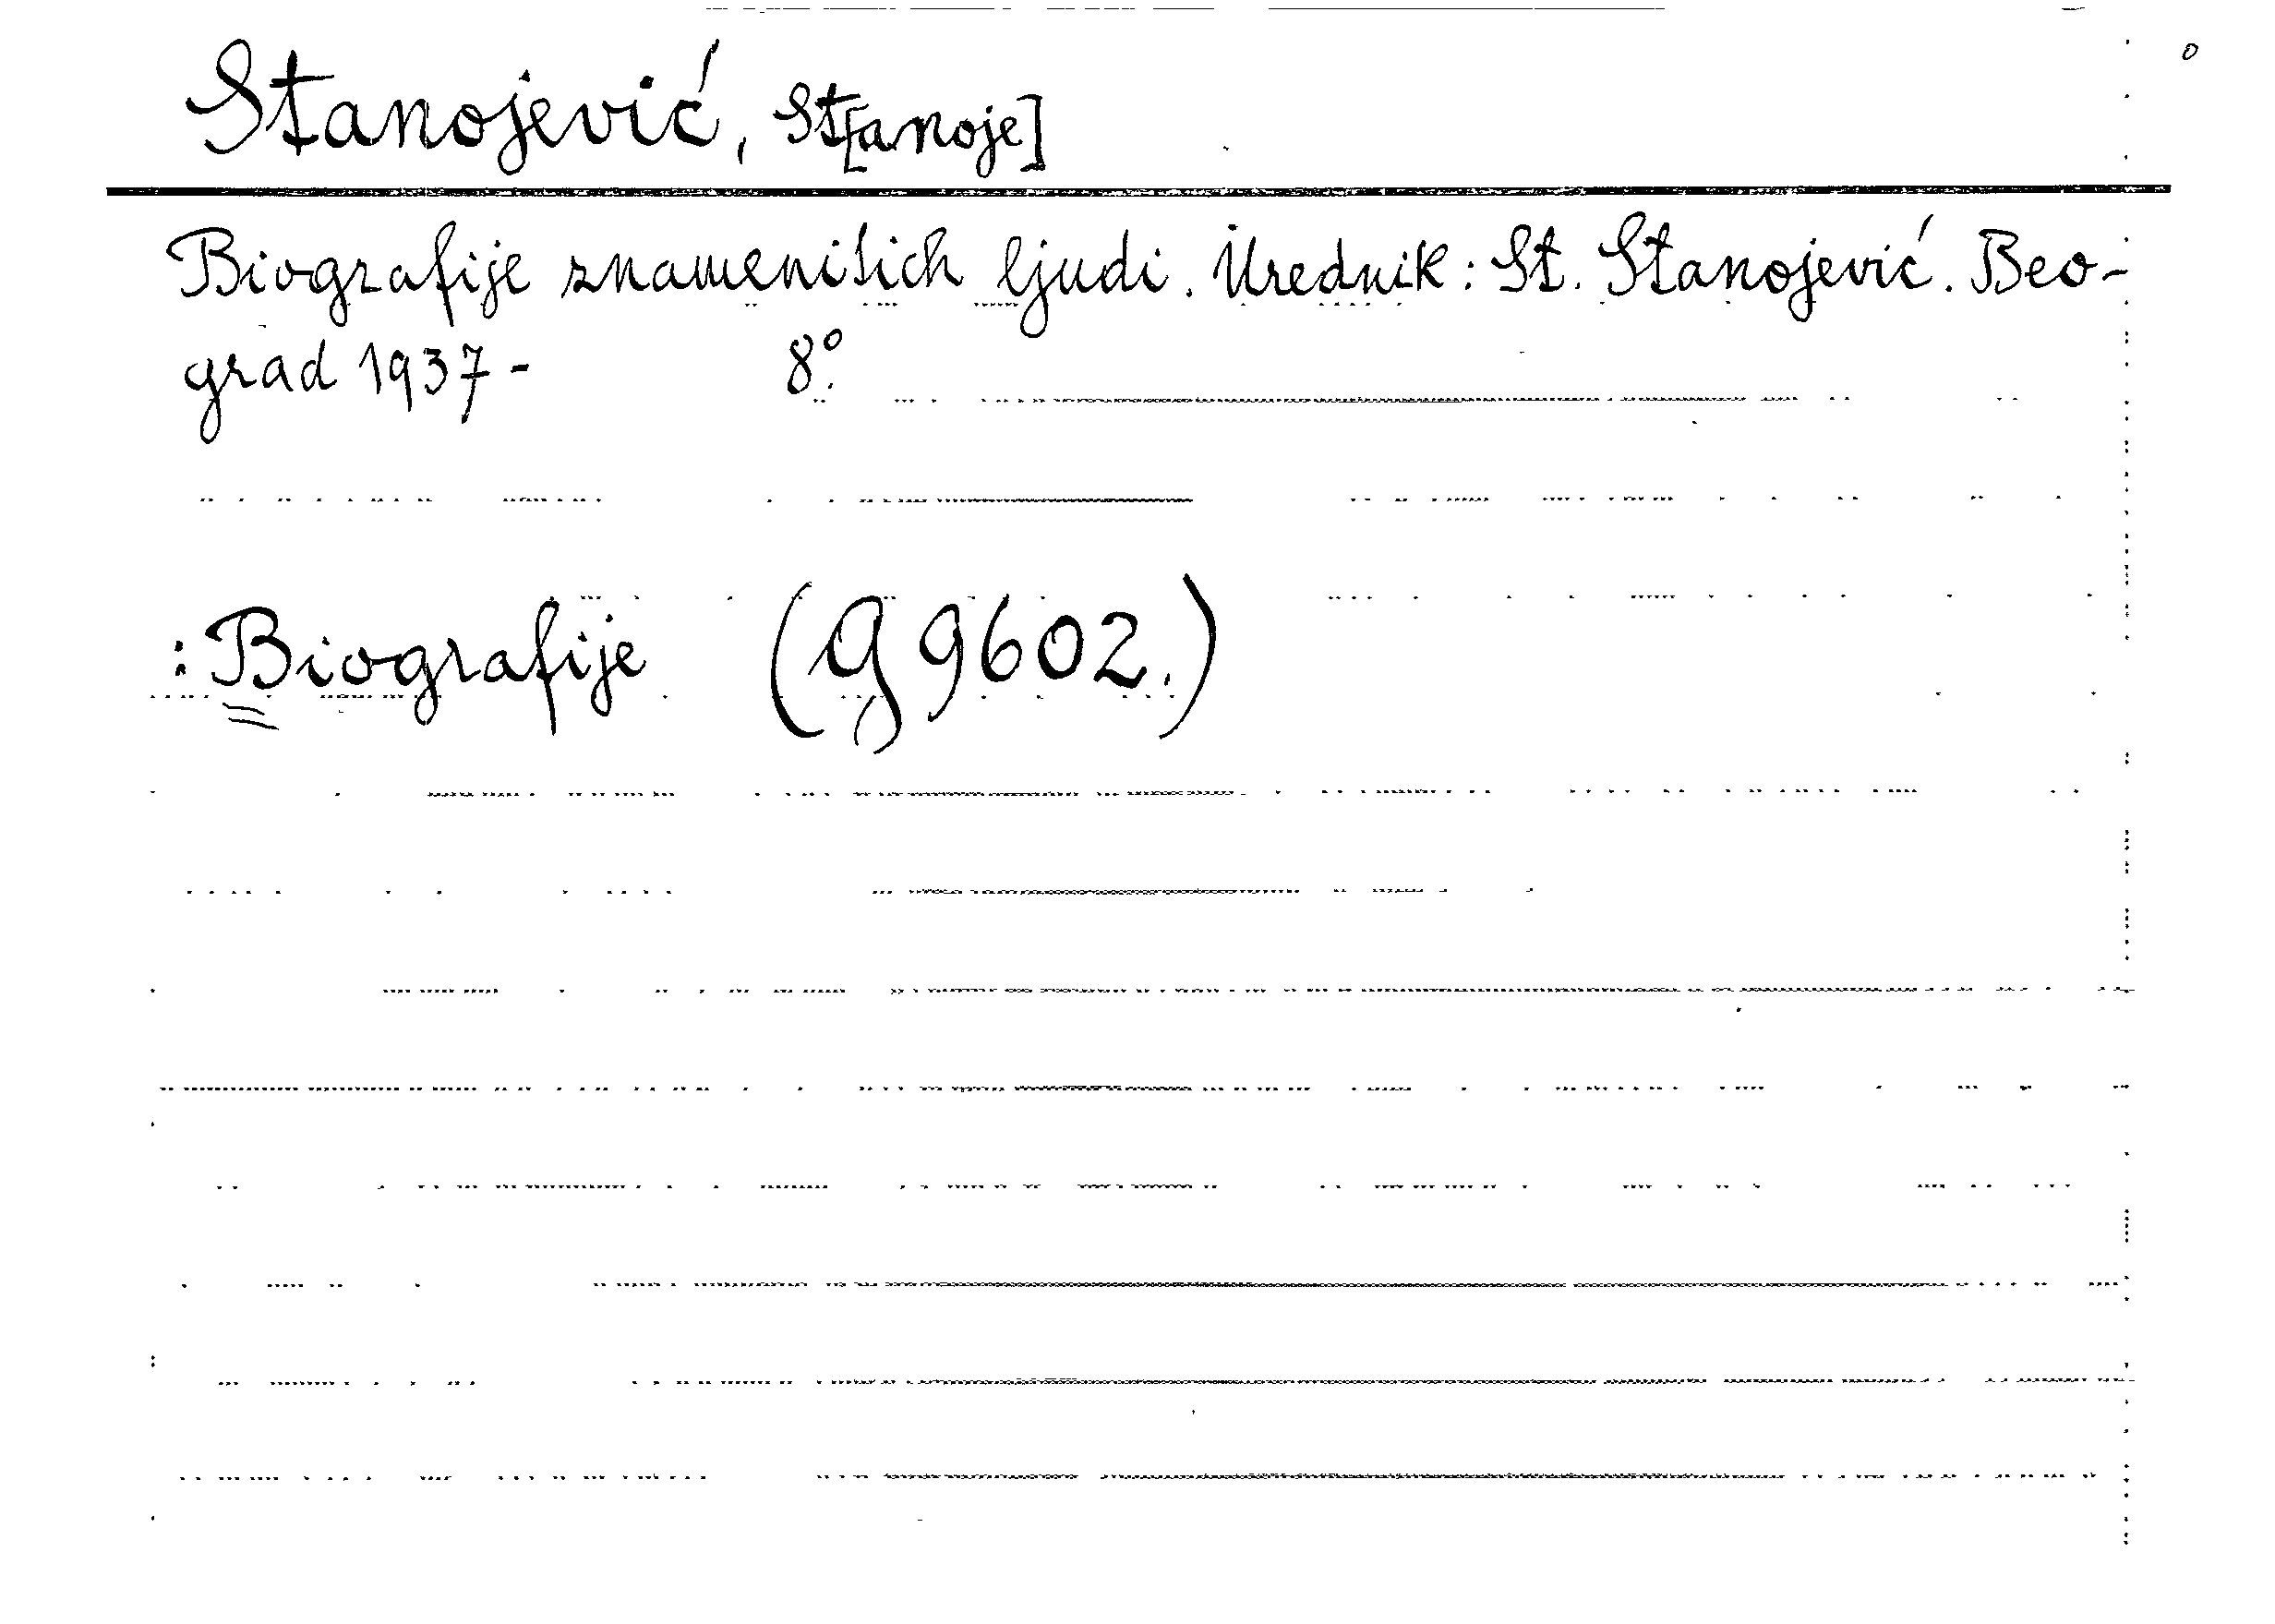 Stanojević, St[anoje]
Biografije znamenitich ljudi. Urednik: St. Stanojević. Beo-
grad 1937- 8°.
: Biografije (G 9602.)